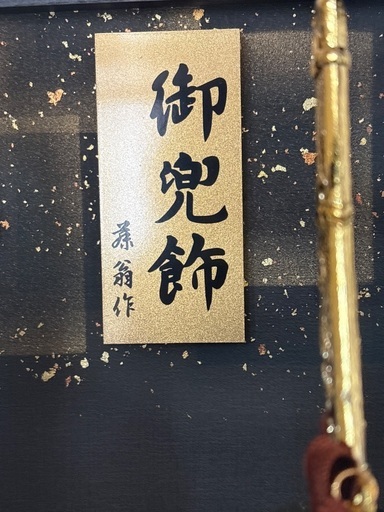 御兜飾
藤翁作